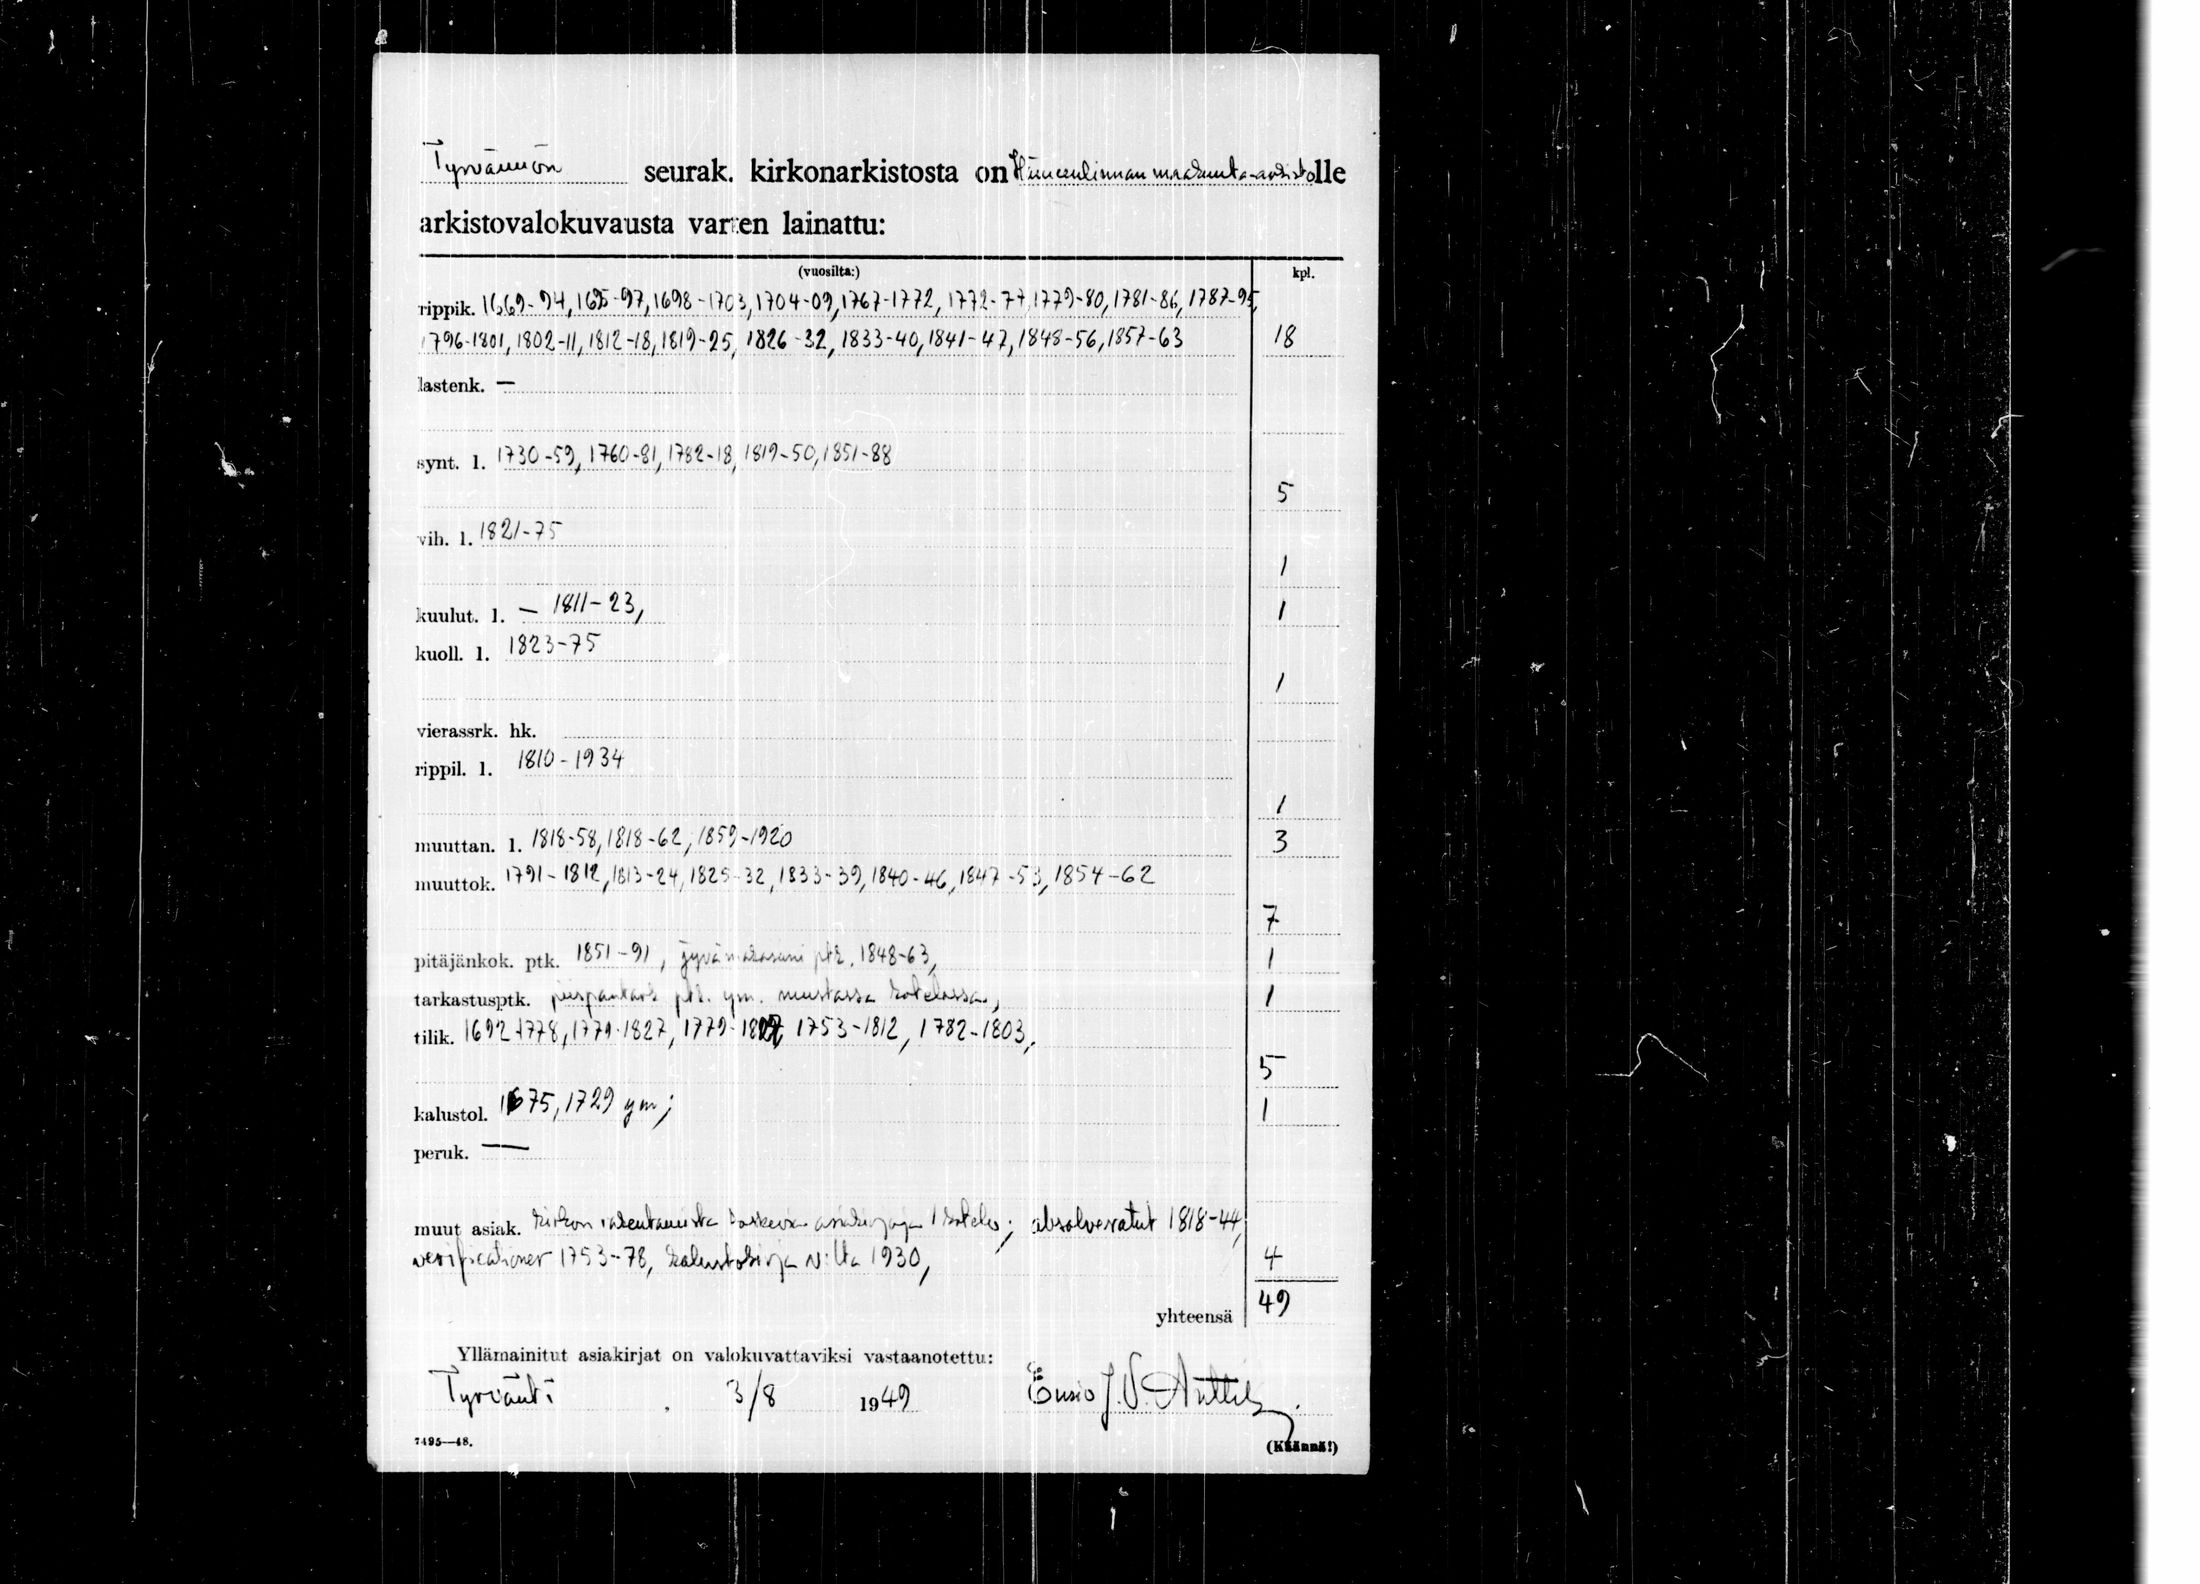 Tyrvännön seurak. kirkonarkistosta on Hämeenlinnan maakunta-arkistolle
arkistovalokuvausta varten lainattu:
(vuosilta:) kpl.
rippik. 1669-94, 1695-97, 1698-1703, 1704-09, 1767-1772, 1772-77, 1779-80, 1781-86, 1787-95,
1796-1801, 1802-11, 1812-18, 1819-25, 1826-32, 1833-40, 1841-47, 1848-56, 1857-63 18
lastenk. —
synt. l. 1730-59, 1760-81, 1782-18, 1819-50, 1851-88
5
vih. l. 1821-75
1
kuulut. l. — 1811-23, 1
kuoll. l. 1823-75
1
vierassrk. hk.
rippil. l. 1810-1934
1
muuttan. l. 1818-58, 1818-62, 1859-1920 3
muuttok. 1791-1812, 1813-24, 1825-32, 1833-39, 1840-46, 1847-53, 1854-62
7
pitäjänkok. ptk. 1851-91, jyvämakasiini ptk. 1848-63, 1
tarkastusptk. piispantark ptk. ym. mustassa kotelossa, 1
tilik. 1692-1778, 1779-1827, 1779-1827, 1753-1812, 1782-1803,
5
kalustol. 1675, 1729 ym; 1
peruk. —
muut asiak. kirkon rakentamista koskevia asiakirjoja 1 kotelo; absolveratut 1818-44,
verificationer 1753-78, kalustokirja v:lta 1930, 4
yhteensä 49
Yllämainitut asiakirjat on valokuvattaviksi vastaanotettu:
Tyrväntö, 3/8 1949 Ensio J. V. Anttila.
7495—48. (Käännä!)